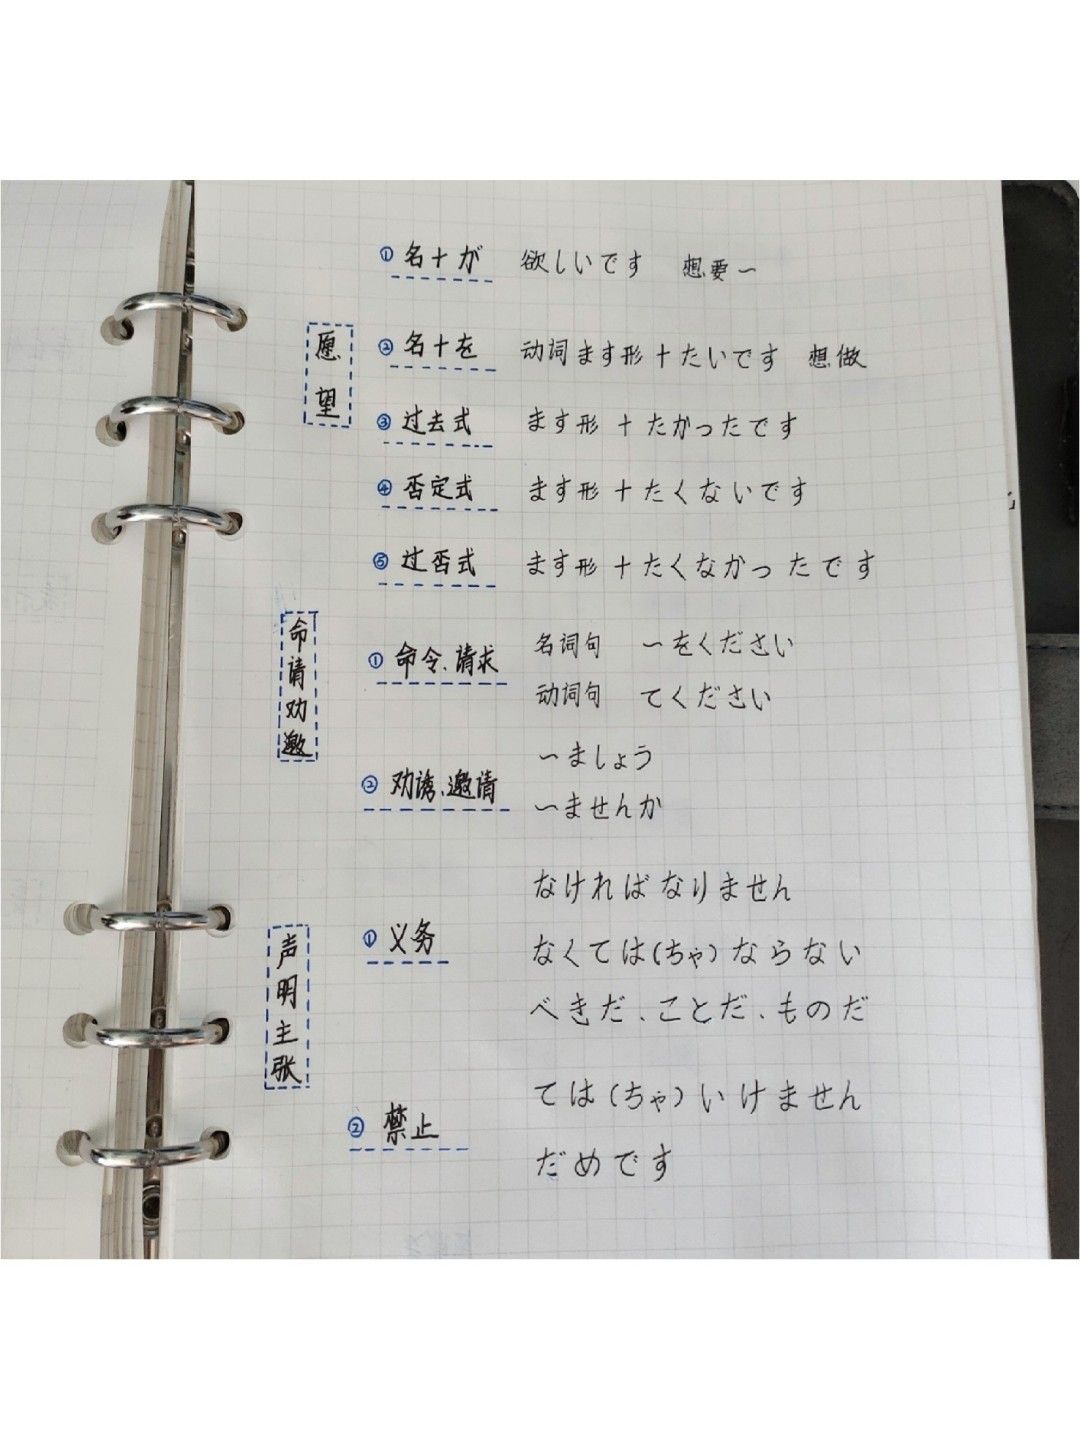 愿望
① 名+が 欲しいです 想要～
② 名+を 动词ます形+たいです 想做
③ 过去式 ます形+たかったです
④ 否定式 ます形+たくないです
⑤ 过否式 ます形+たくなかったです
命请劝邀
① 命令、请求 名词句 ～をください
动词句 てください
② 劝诱、邀请 ～ましょう
～ませんか
声明主张
① 义务 なければなりません
なくては(ちゃ)ならない
べきだ、ことだ、ものだ
② 禁止 ては(ちゃ)いけません
だめです